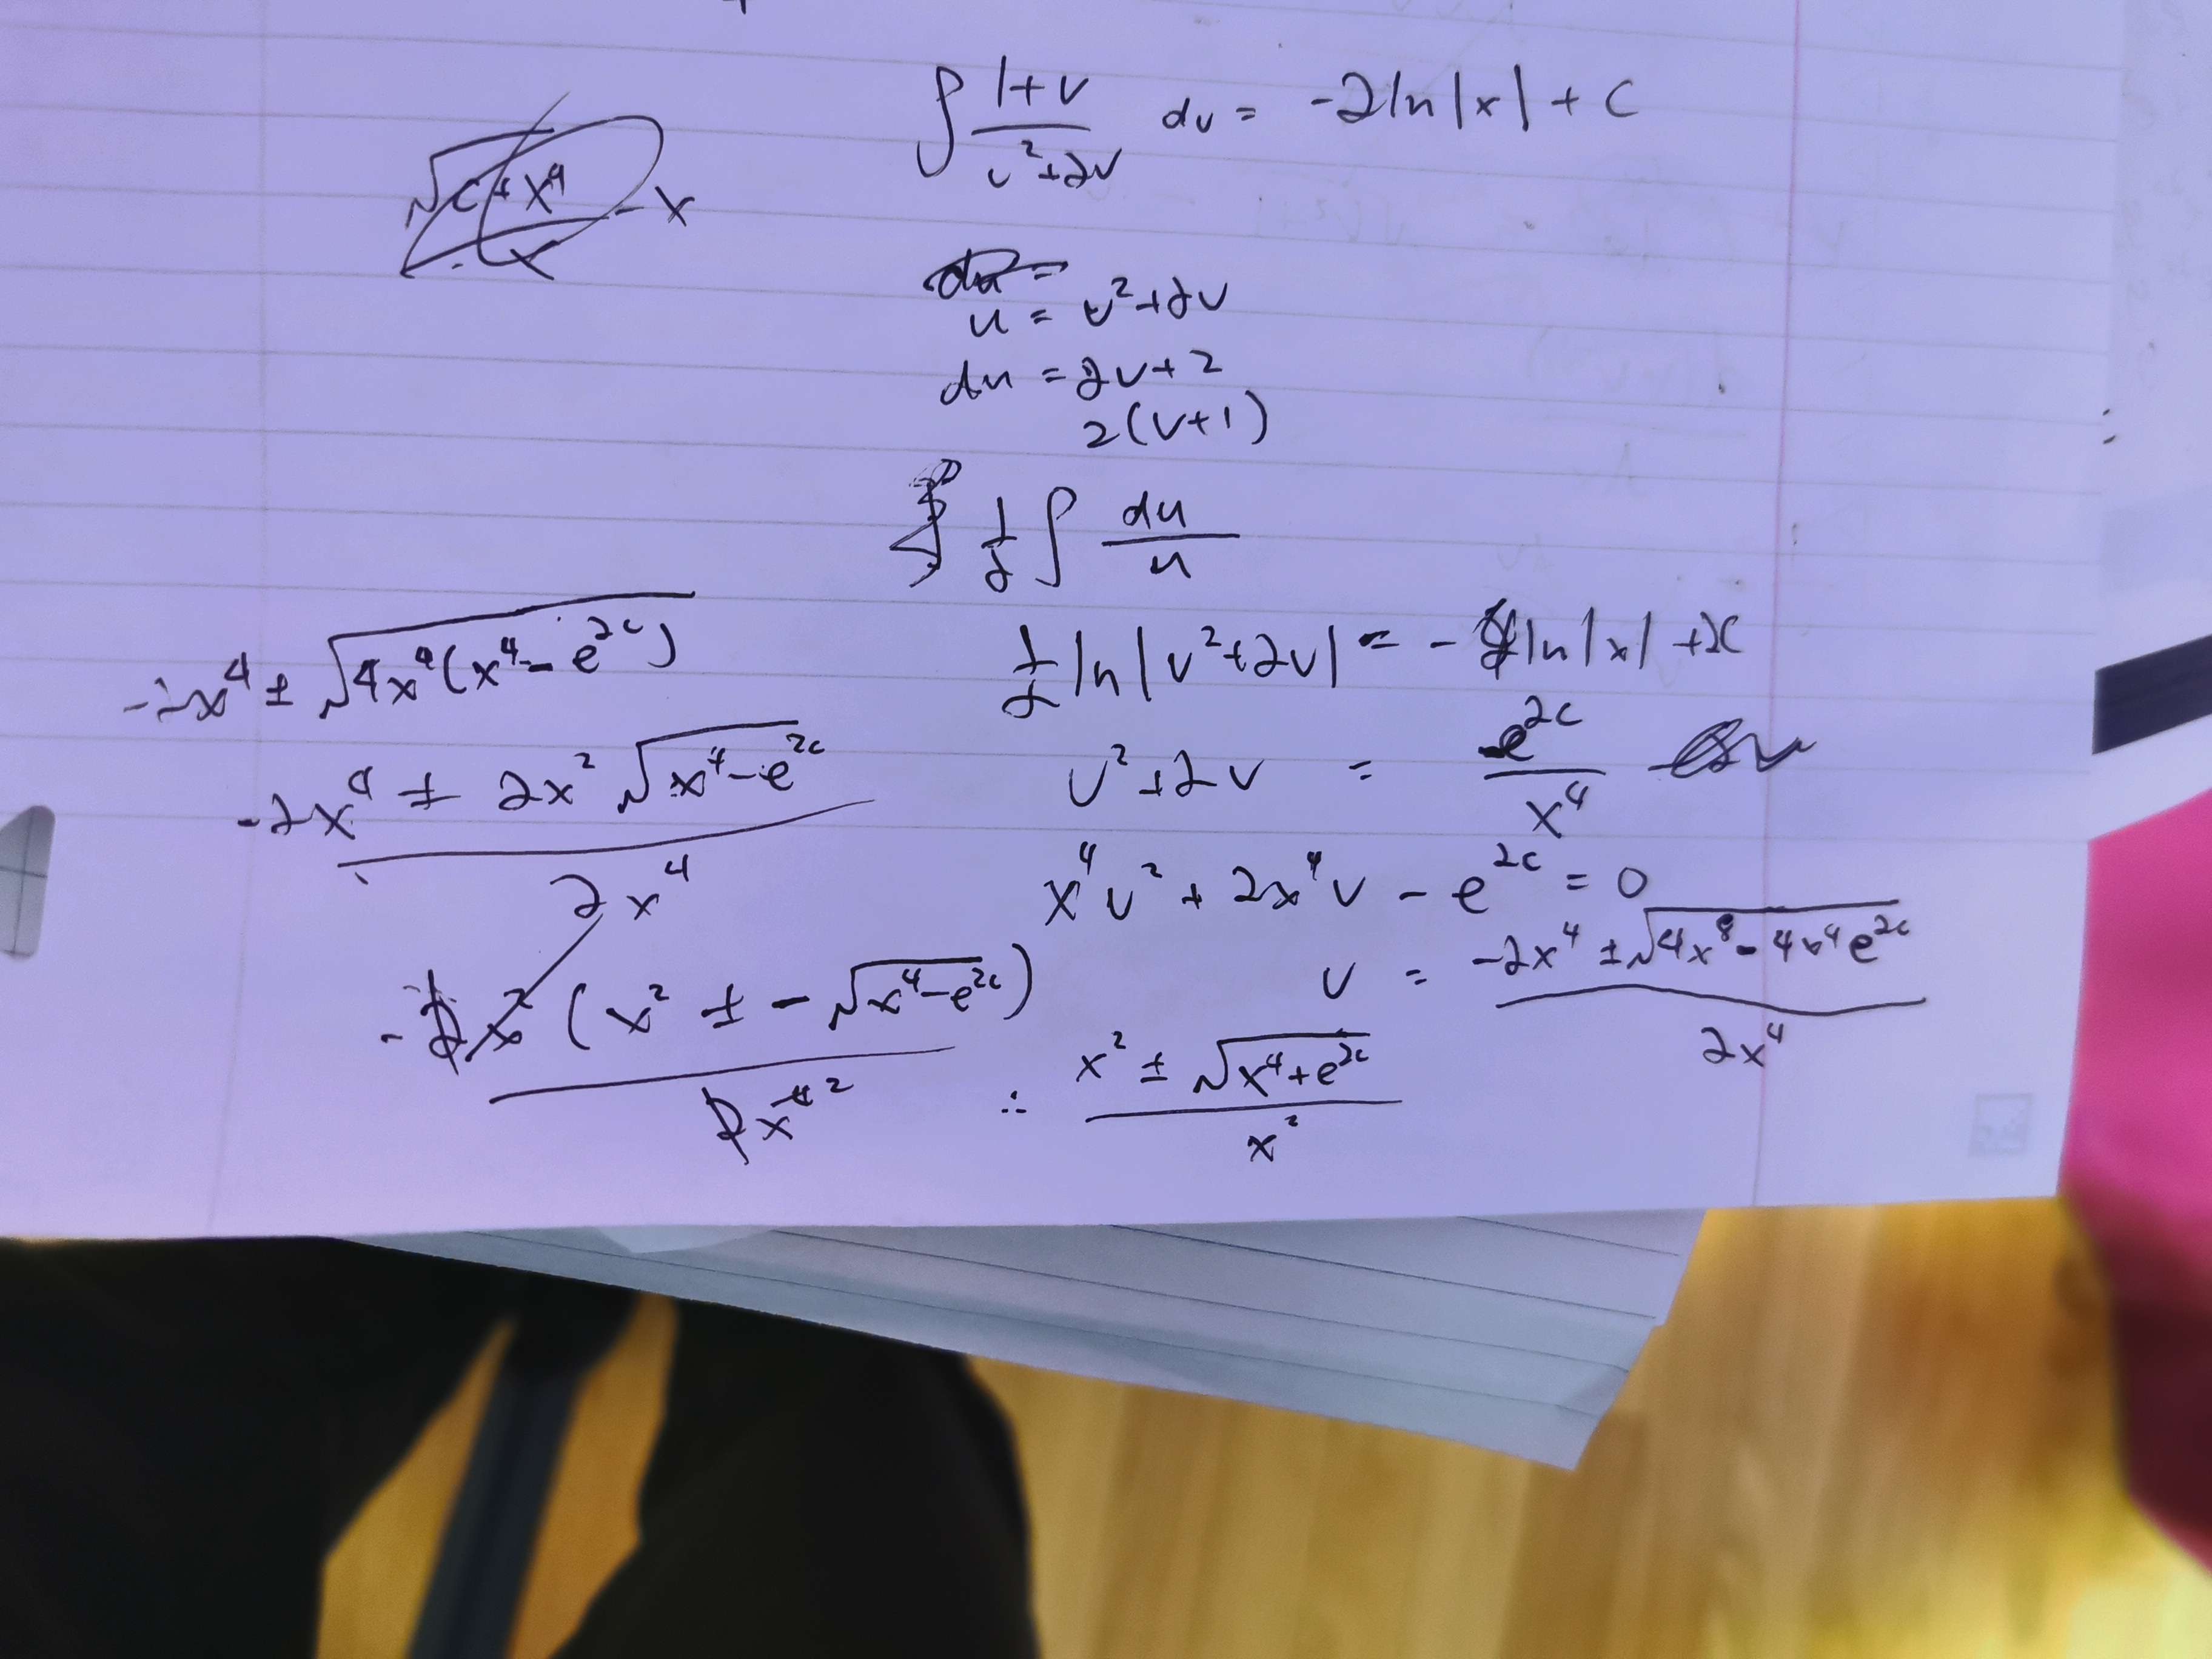 ∫ (1+v)/(v²+2v) dv = -2ln|x| + c
√(c+x⁴)/x - x
du =
u = v²+2v
du = 2v+2
2(v+1)
1/2 ∫ du/u
1/2 ln|v²+2v| = - ln|x| + 2c
v²+2v = e^(2c)/x⁴
x⁴v² + 2x⁴v - e^(2c) = 0
v = (-2x⁴ ± √(4x⁸ - 4x⁴e^(2c)))/(2x⁴)
-2x⁴ ± √(4x⁴(x⁴ - e^(2c)))
(-2x⁴ ± 2x²√(x⁴-e^(2c)))/(2x⁴)
-2x²(x² ± -√(x⁴-e^(2c)))/(2x⁴ ²)
∴ (x² ± √(x⁴+e^(2c)))/x²